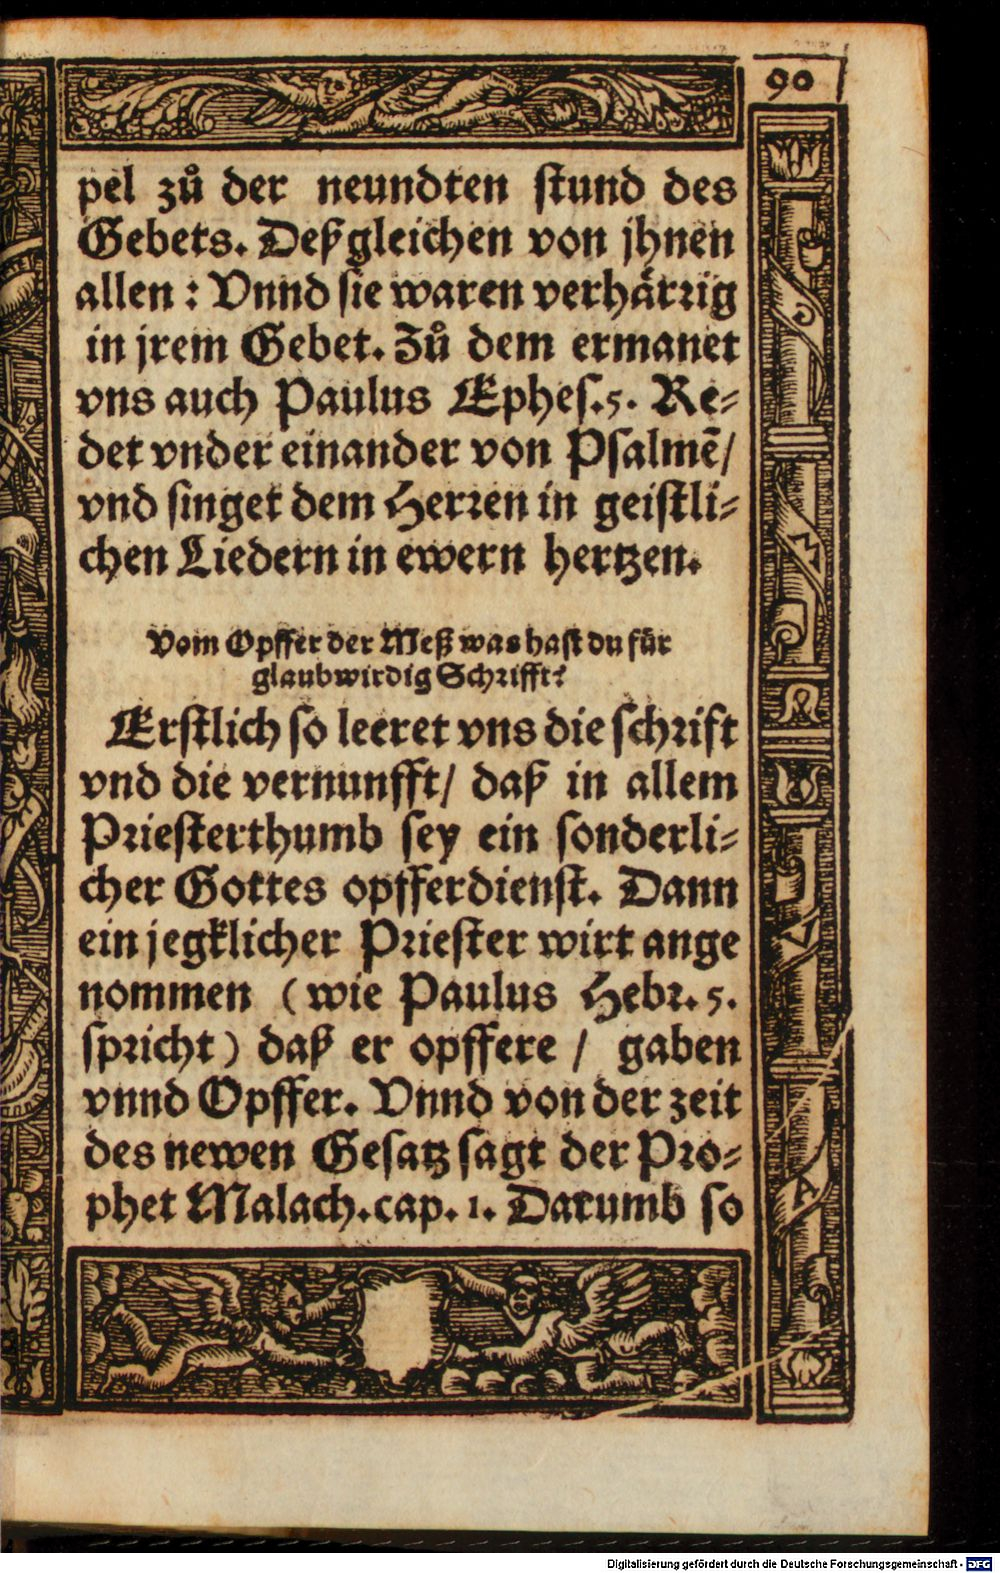 90
pel zů der neundten stund des
Gebets. Deßgleichen von jhnen
allen : Vnnd sie waren verhärꝛig
in jrem Gebet. Zů dem ermanet
vns auch Paulus Ephes.5. Re⸗
det vnder einander von Psalmẽ/
vnd singet dem Herꝛen in geistli⸗
chen Liedern in ewern hertzen.
Vom Opffer der Meß was hast du für
glaubwirdig Schꝛifft?
Erstlich so leeret vns die schꝛift
vnd die vernunfft/ daß in allem
Pꝛiesterthumb sey ein sonderli⸗
cher Gottes opfferdienst. Dann
ein jegklicher Pꝛiester wirt ange
nommen (wie Paulus Hebꝛ. 5.
spꝛicht) daß er opffere / gaben
vnnd Opffer. Vnnd von der zeit
des newen Gesatz sagt der Pꝛo⸗
phet Malach.cap. 1. Darumb so
Digitalisierung gefördert durch die Deutsche Forschungsgemeinschaft - DFG